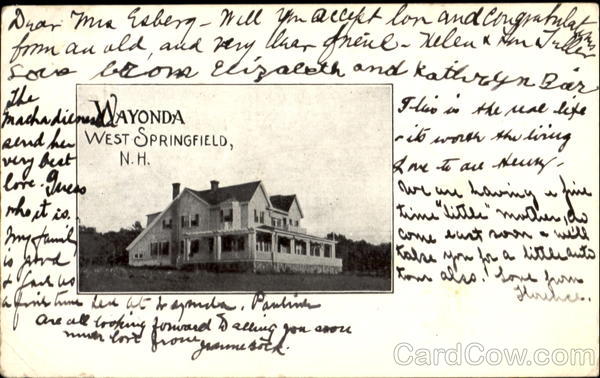 Dear Mrs Esberg - Will you accept love and congratulations
from an old, and very dear friend - Helen &
love from Elizabeth and Kathryn
The
send her
very best
love. Guess
who it is.
My family
is good
a fine time here at Wayonda. Pauline
WAYONDA
WEST SPRINGFIELD,
N.H.
This is the real life
- its worth the living
Love to all Henry -
We are having a fine
time "little" mother, do
come east soon & will
take you for a little auto
tour also. Love from
Florence.
are all looking forward to seeing you soon
much love from
CardCow.com